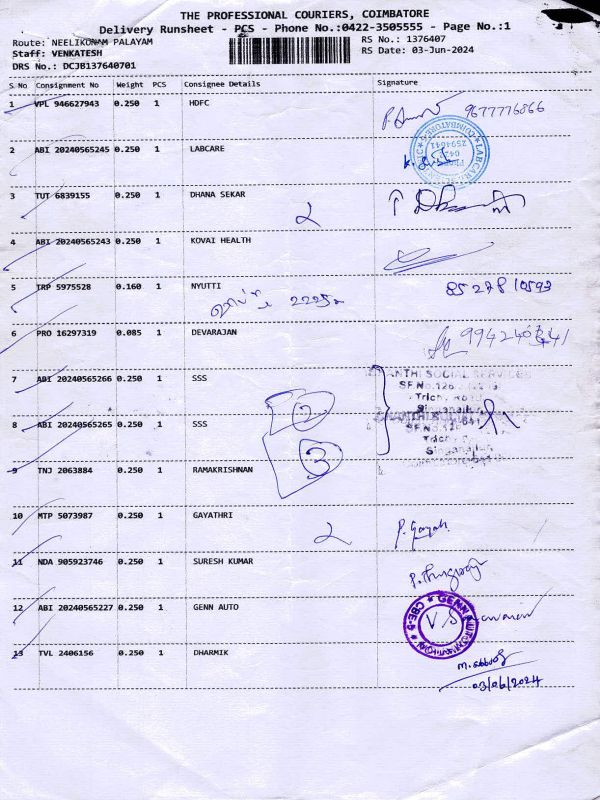 THE PROFESSIONAL COURIERS, COIMBATORE
Delivery Runsheet - PCS - Phone No.:0422-3505555 - Page No.:1
Route: NEELIKONAM PALAYAM RS No.: 1376407
Staff: VENKATESH RS Date: 03-Jun-2024
DRS No.: DCJB137640701
S No Consignment No Weight PCS Consignee Details Signature
1 VPL 946627943 0.250 1 HDFC 9677776866
2 ABI 20240565245 0.250 1 LABCARE
LABCARE COIMBATORE Phone 0422 2594641
3 TUT 6839155 0.250 1 DHANA SEKAR
2
4 ABI 20240565243 0.250 1 KOVAI HEALTH
5 TRP 5975528 0.160 1 NYUTTI 8527810593
6 PRO 16297319 0.085 1 DEVARAJAN
7 ABI 20240565266 0.250 1 SSS
SOCIAL SERVICES
2
8 ABI 20240565265 0.250 1 SSS
Singanallur,
3
9 TNJ 2063884 0.250 1 RAMAKRISHNAN
10 MTP 5073987 0.250 1 GAYATHRI
2 P. Gayath
11 NDA 905923746 0.250 1 SURESH KUMAR
12 ABI 20240565227 0.250 1 GENN AUTO
GENN AUTOMATION CBE-5
13 TVL 2406156 0.250 1 DHARMIK
03/06/2024